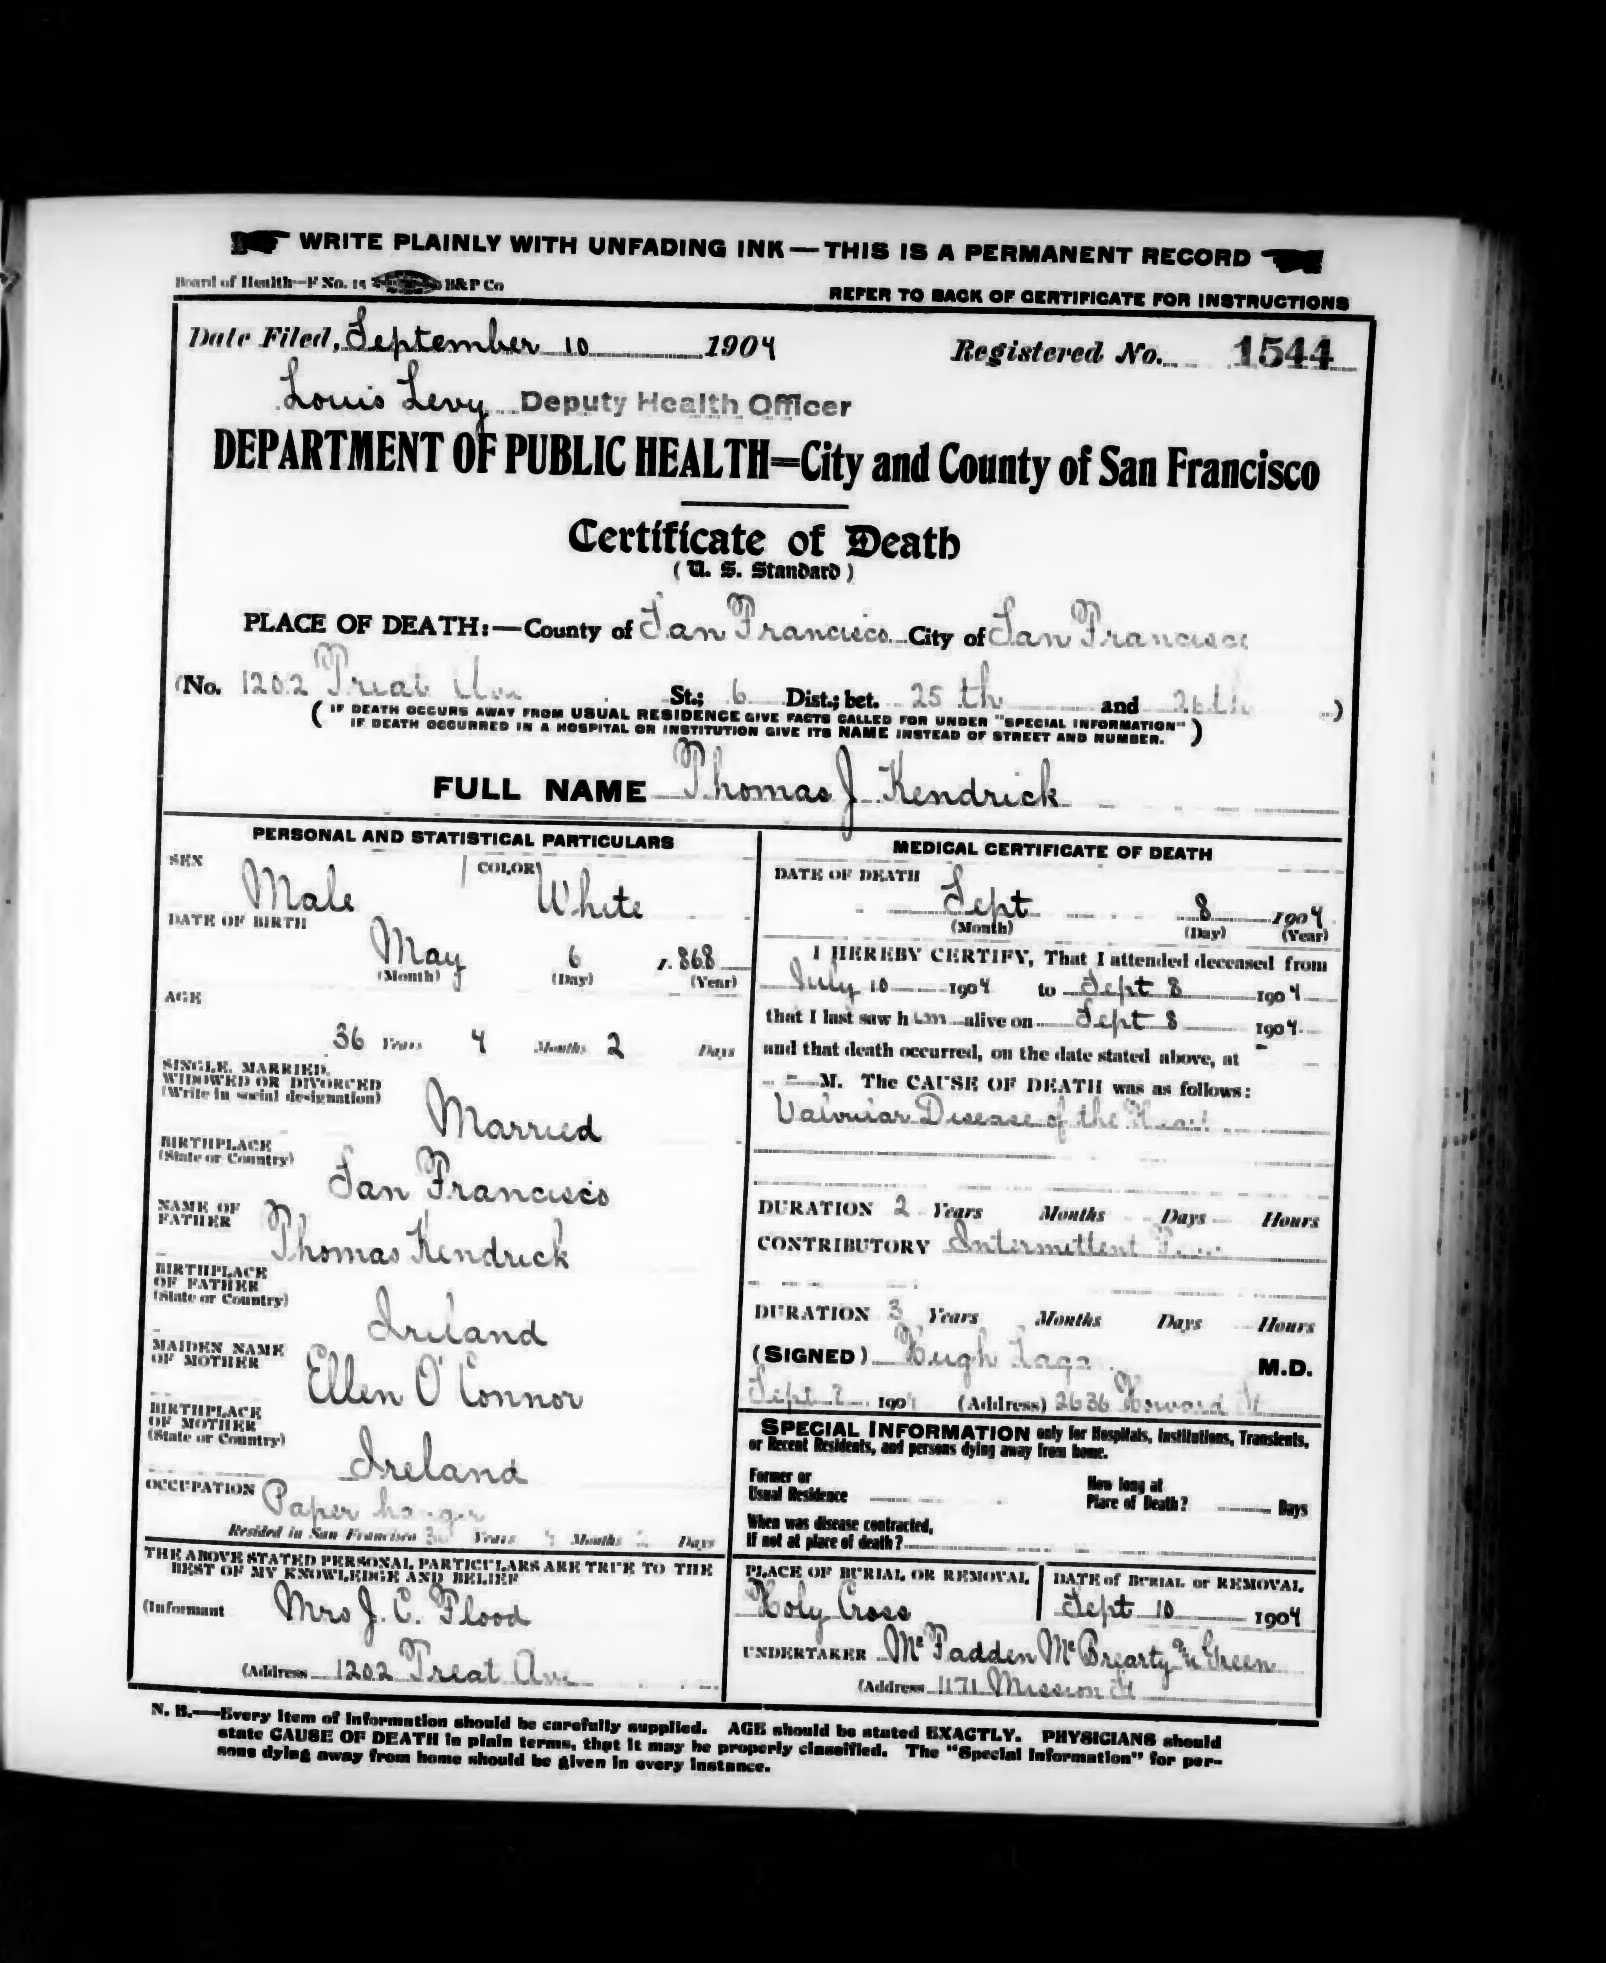 WRITE PLAINLY WITH UNFADING INK—THIS IS A PERMANENT RECORD
Board of Health—F No. 15 B&P Co
REFER TO BACK OF CERTIFICATE FOR INSTRUCTIONS
Date Filed, September 10 1904 Registered No. 1544
Louis Levy Deputy Health Officer
DEPARTMENT OF PUBLIC HEALTH=City and County of San Francisco
Certificate of Death
(U. S. Standard)
PLACE OF DEATH:—County of San Francisco City of San Francisco
(No. 1202 Treat Ave St.; 6 Dist.; bet. 25th and 26th)
(IF DEATH OCCURS AWAY FROM USUAL RESIDENCE GIVE FACTS CALLED FOR UNDER "SPECIAL INFORMATION"
IF DEATH OCCURRED IN A HOSPITAL OR INSTITUTION GIVE ITS NAME INSTEAD OF STREET AND NUMBER.)
FULL NAME Thomas J Kendrick
PERSONAL AND STATISTICAL PARTICULARS
SEX Male COLOR White
DATE OF BIRTH
May 6 1.868
(Month) (Day) (Year)
AGE
36 Years 4 Months 2 Days
SINGLE, MARRIED,
WIDOWED OR DIVORCED
(Write in social designation)
Married
BIRTHPLACE
(State or Country)
San Francisco
NAME OF
FATHER
Thomas Kendrick
BIRTHPLACE
OF FATHER
(State or Country)
Ireland
MAIDEN NAME
OF MOTHER
Ellen O'Connor
BIRTHPLACE
OF MOTHER
(State or Country)
Ireland
OCCUPATION Paper hanger
Resided in San Francisco 36 Years 4 Months Days
THE ABOVE STATED PERSONAL PARTICULARS ARE TRUE TO THE
BEST OF MY KNOWLEDGE AND BELIEF
(Informant Mrs J. C. Flood
(Address 1202 Treat Ave
MEDICAL CERTIFICATE OF DEATH
DATE OF DEATH
Sept 8 1904
(Month) (Day) (Year)
I HEREBY CERTIFY, That I attended deceased from
July 10 1904 to Sept 8 1904
that I last saw him alive on Sept 8 1904
and that death occurred, on the date stated above, at -
- M. The CAUSE OF DEATH was as follows:
Valvular Disease of the Heart
DURATION 2 Years Months Days Hours
CONTRIBUTORY Intermittent
DURATION 3 Years Months Days Hours
(SIGNED) Hugh M.D.
Sept 1904 (Address) 2636 Howard St
SPECIAL INFORMATION only for Hospitals, Institutions, Transients,
or Recent Residents, and persons dying away from home.
Former or
Usual Residence
How long at
Place of Death? Days
When was disease contracted,
If not at place of death?
PLACE OF BURIAL OR REMOVAL
Holy Cross
DATE of BURIAL or REMOVAL
Sept 10 1904
UNDERTAKER McFadden McBrearty & Green
(Address 1171 Mission St
N. B.—Every item of information should be carefully supplied. AGE should be stated EXACTLY. PHYSICIANS should
state CAUSE OF DEATH in plain terms, that it may be properly classified. The "Special Information" for per-
sons dying away from home should be given in every instance.